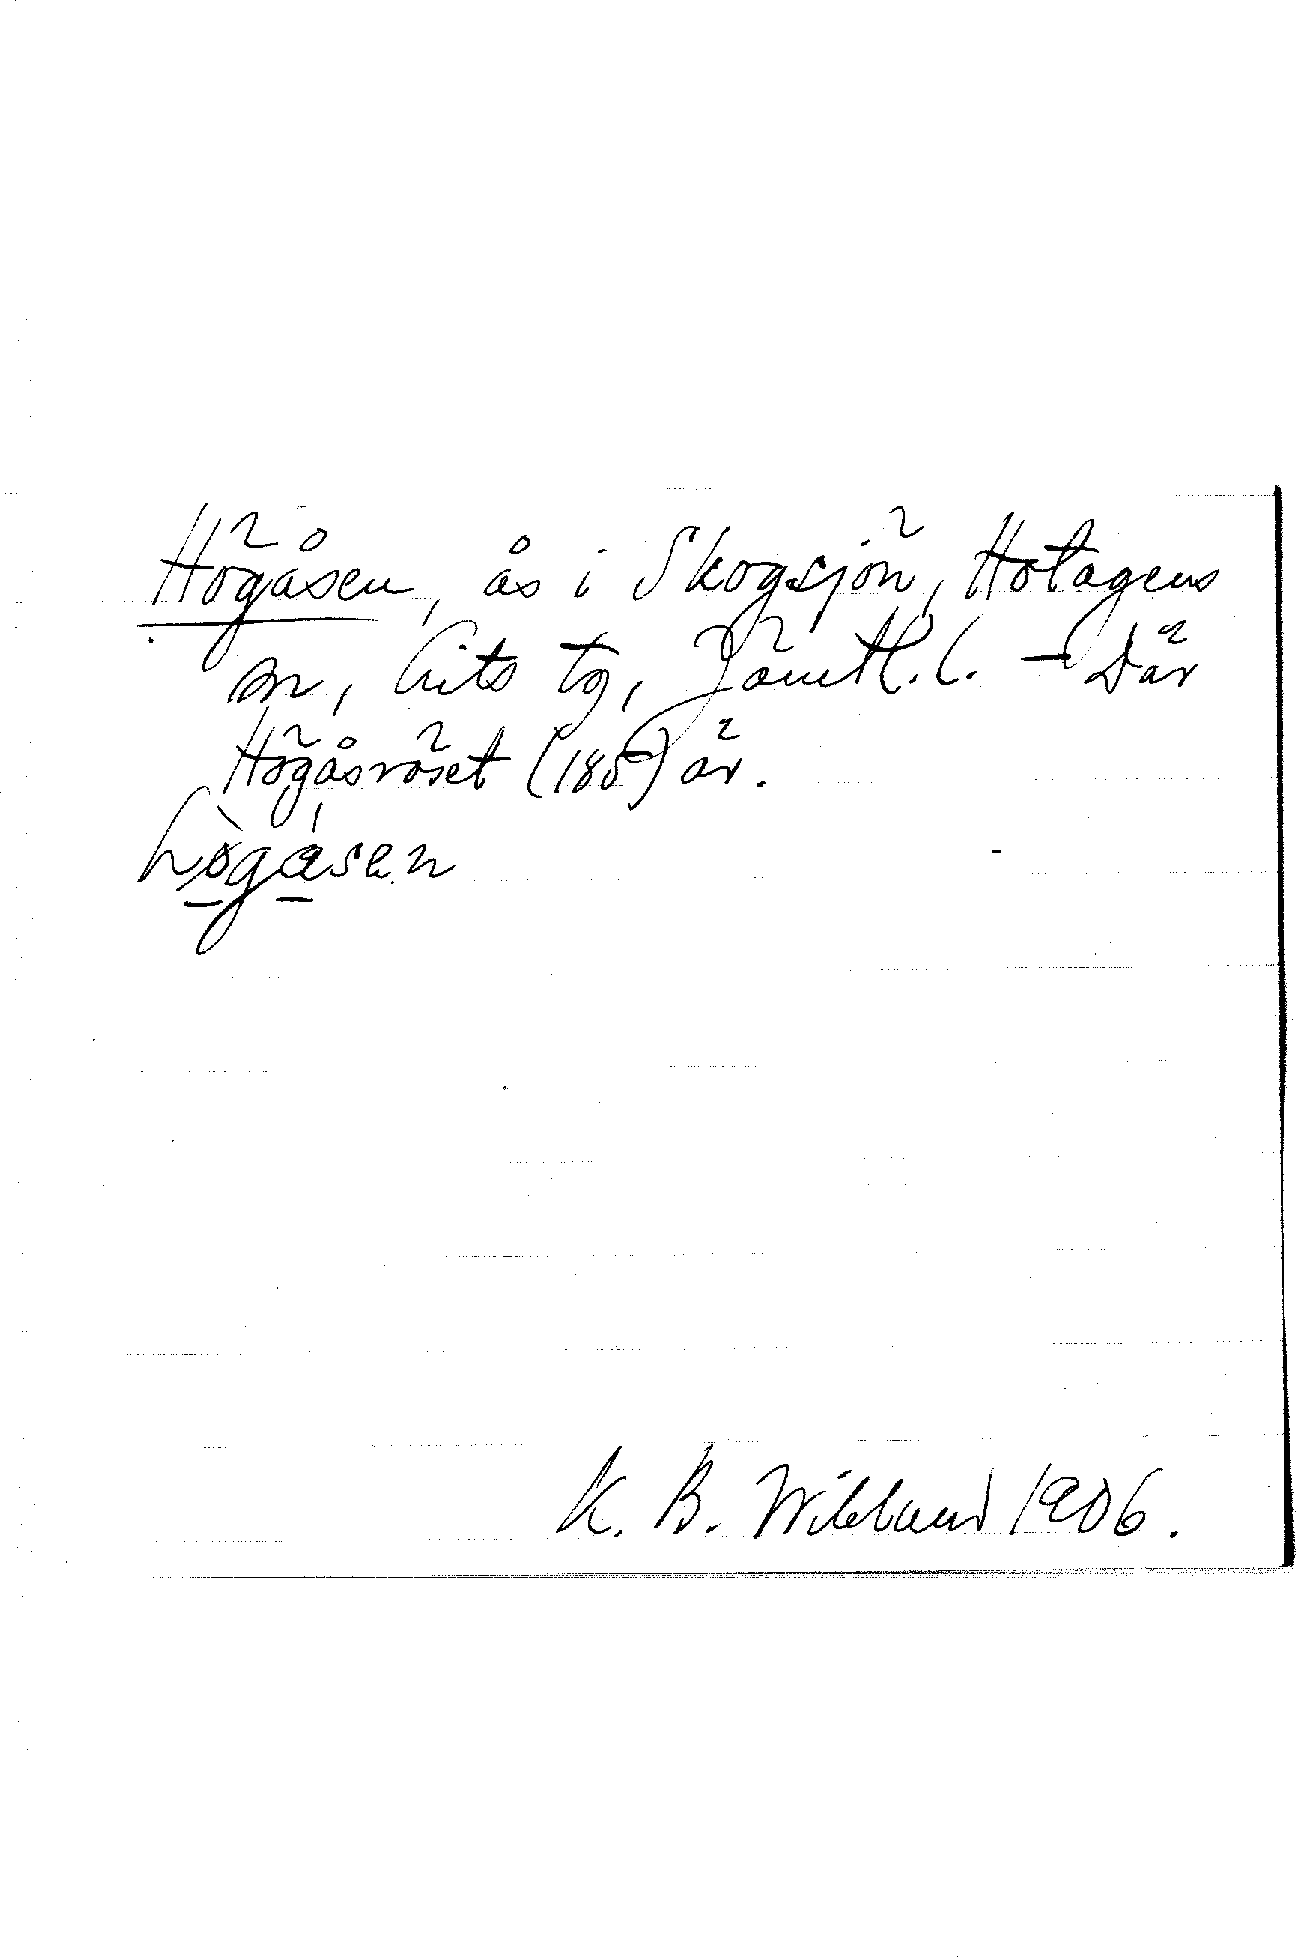 Högåsen, ås i Skogsjön, Hotagens
sn, Lits tg, Jämtl. l. – Där
Högåsröset (185) är.
hø̀gásen
K. B. Wiklund 1906.